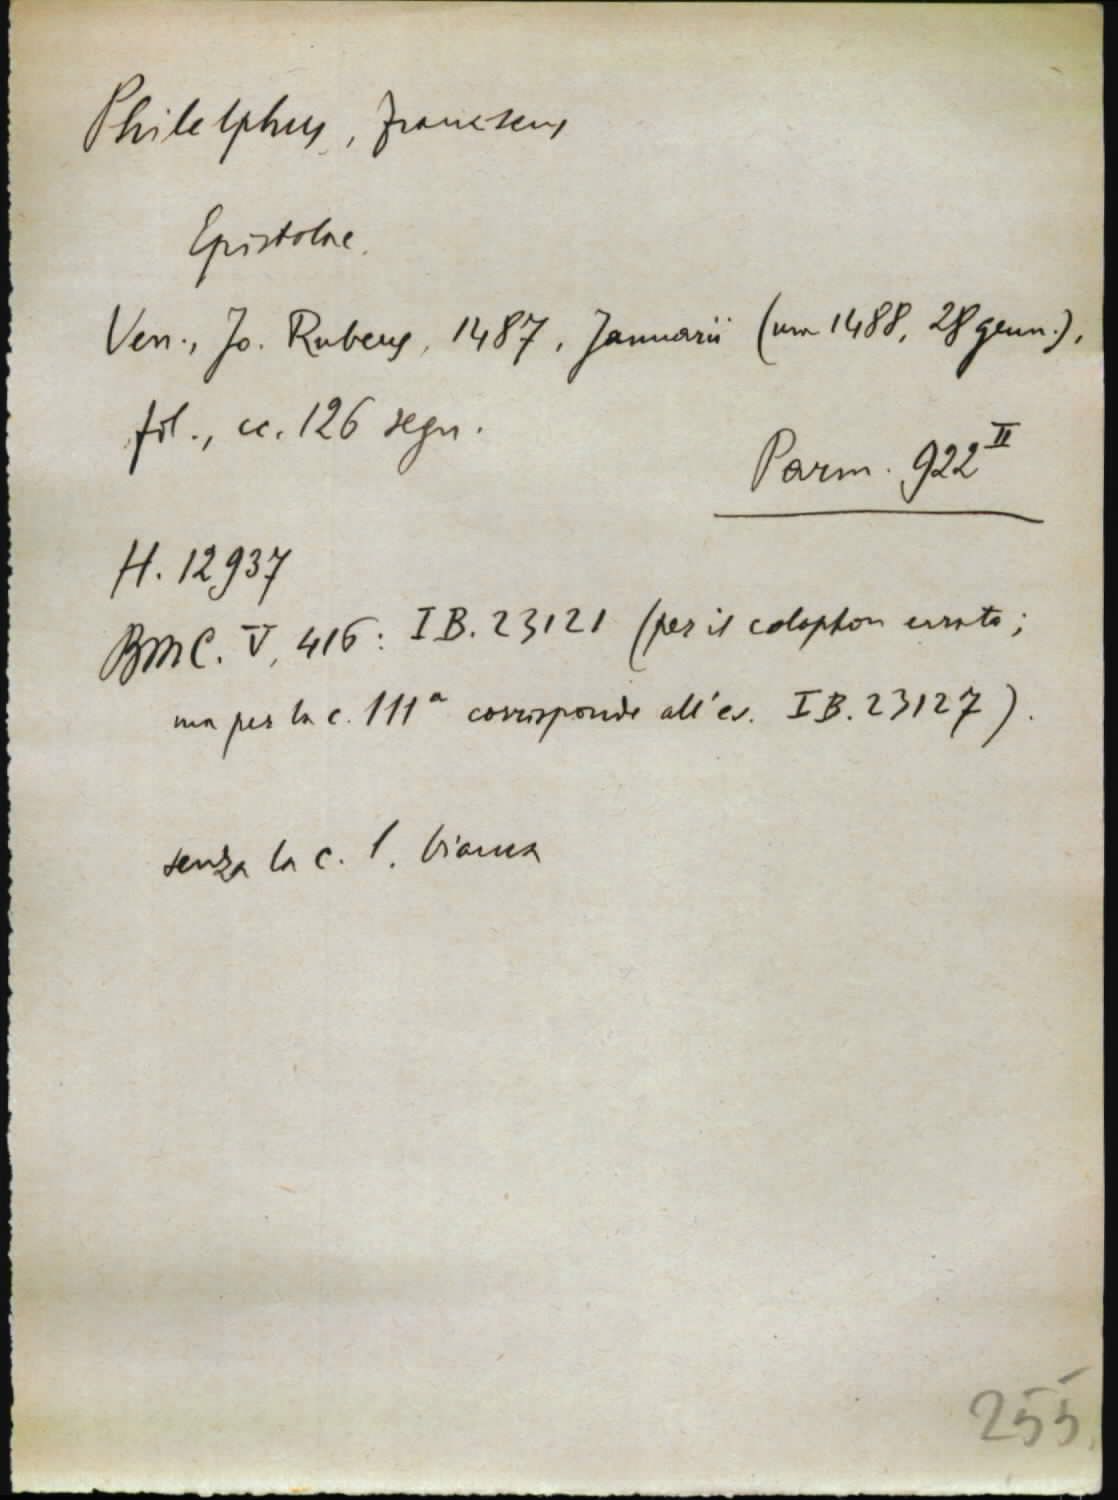 Philelphus, Franciscus
Epistolae.
Ven., Jo. Rubeus, 1487, Januarii (ma 1488, 28 genn.),
fol., cc. 126 segn.
Parm. 922 II
H. 12937
BMC. V, 416: IB. 23121 (per il colophon errato;
ma per la c. 111a corrisponde all'es. IB. 23127).
senza la c. 1. bianca
255